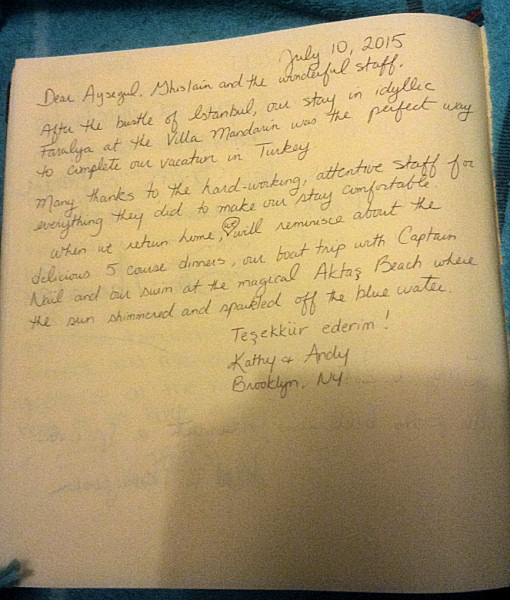 July 10, 2015
Dear Aysegul, Ghislain and the wonderful staff.
After the bustle of Istanbul, our stay in idyllic
Faralya at the Villa Mandarin was the perfect way
to complete our vacation in Turkey
Many thanks to the hard-working, attentive staff for
everything they did to make our stay comfortable.
When we return home, we will reminisce about the
delicious 5 course dinners, our boat trip with Captain
Nail and our swim at the magical Aktaş Beach where
the sun shimmered and sparkled off the blue water.
Teşekkür ederim!
Kathy & Andy
Brooklyn, NY